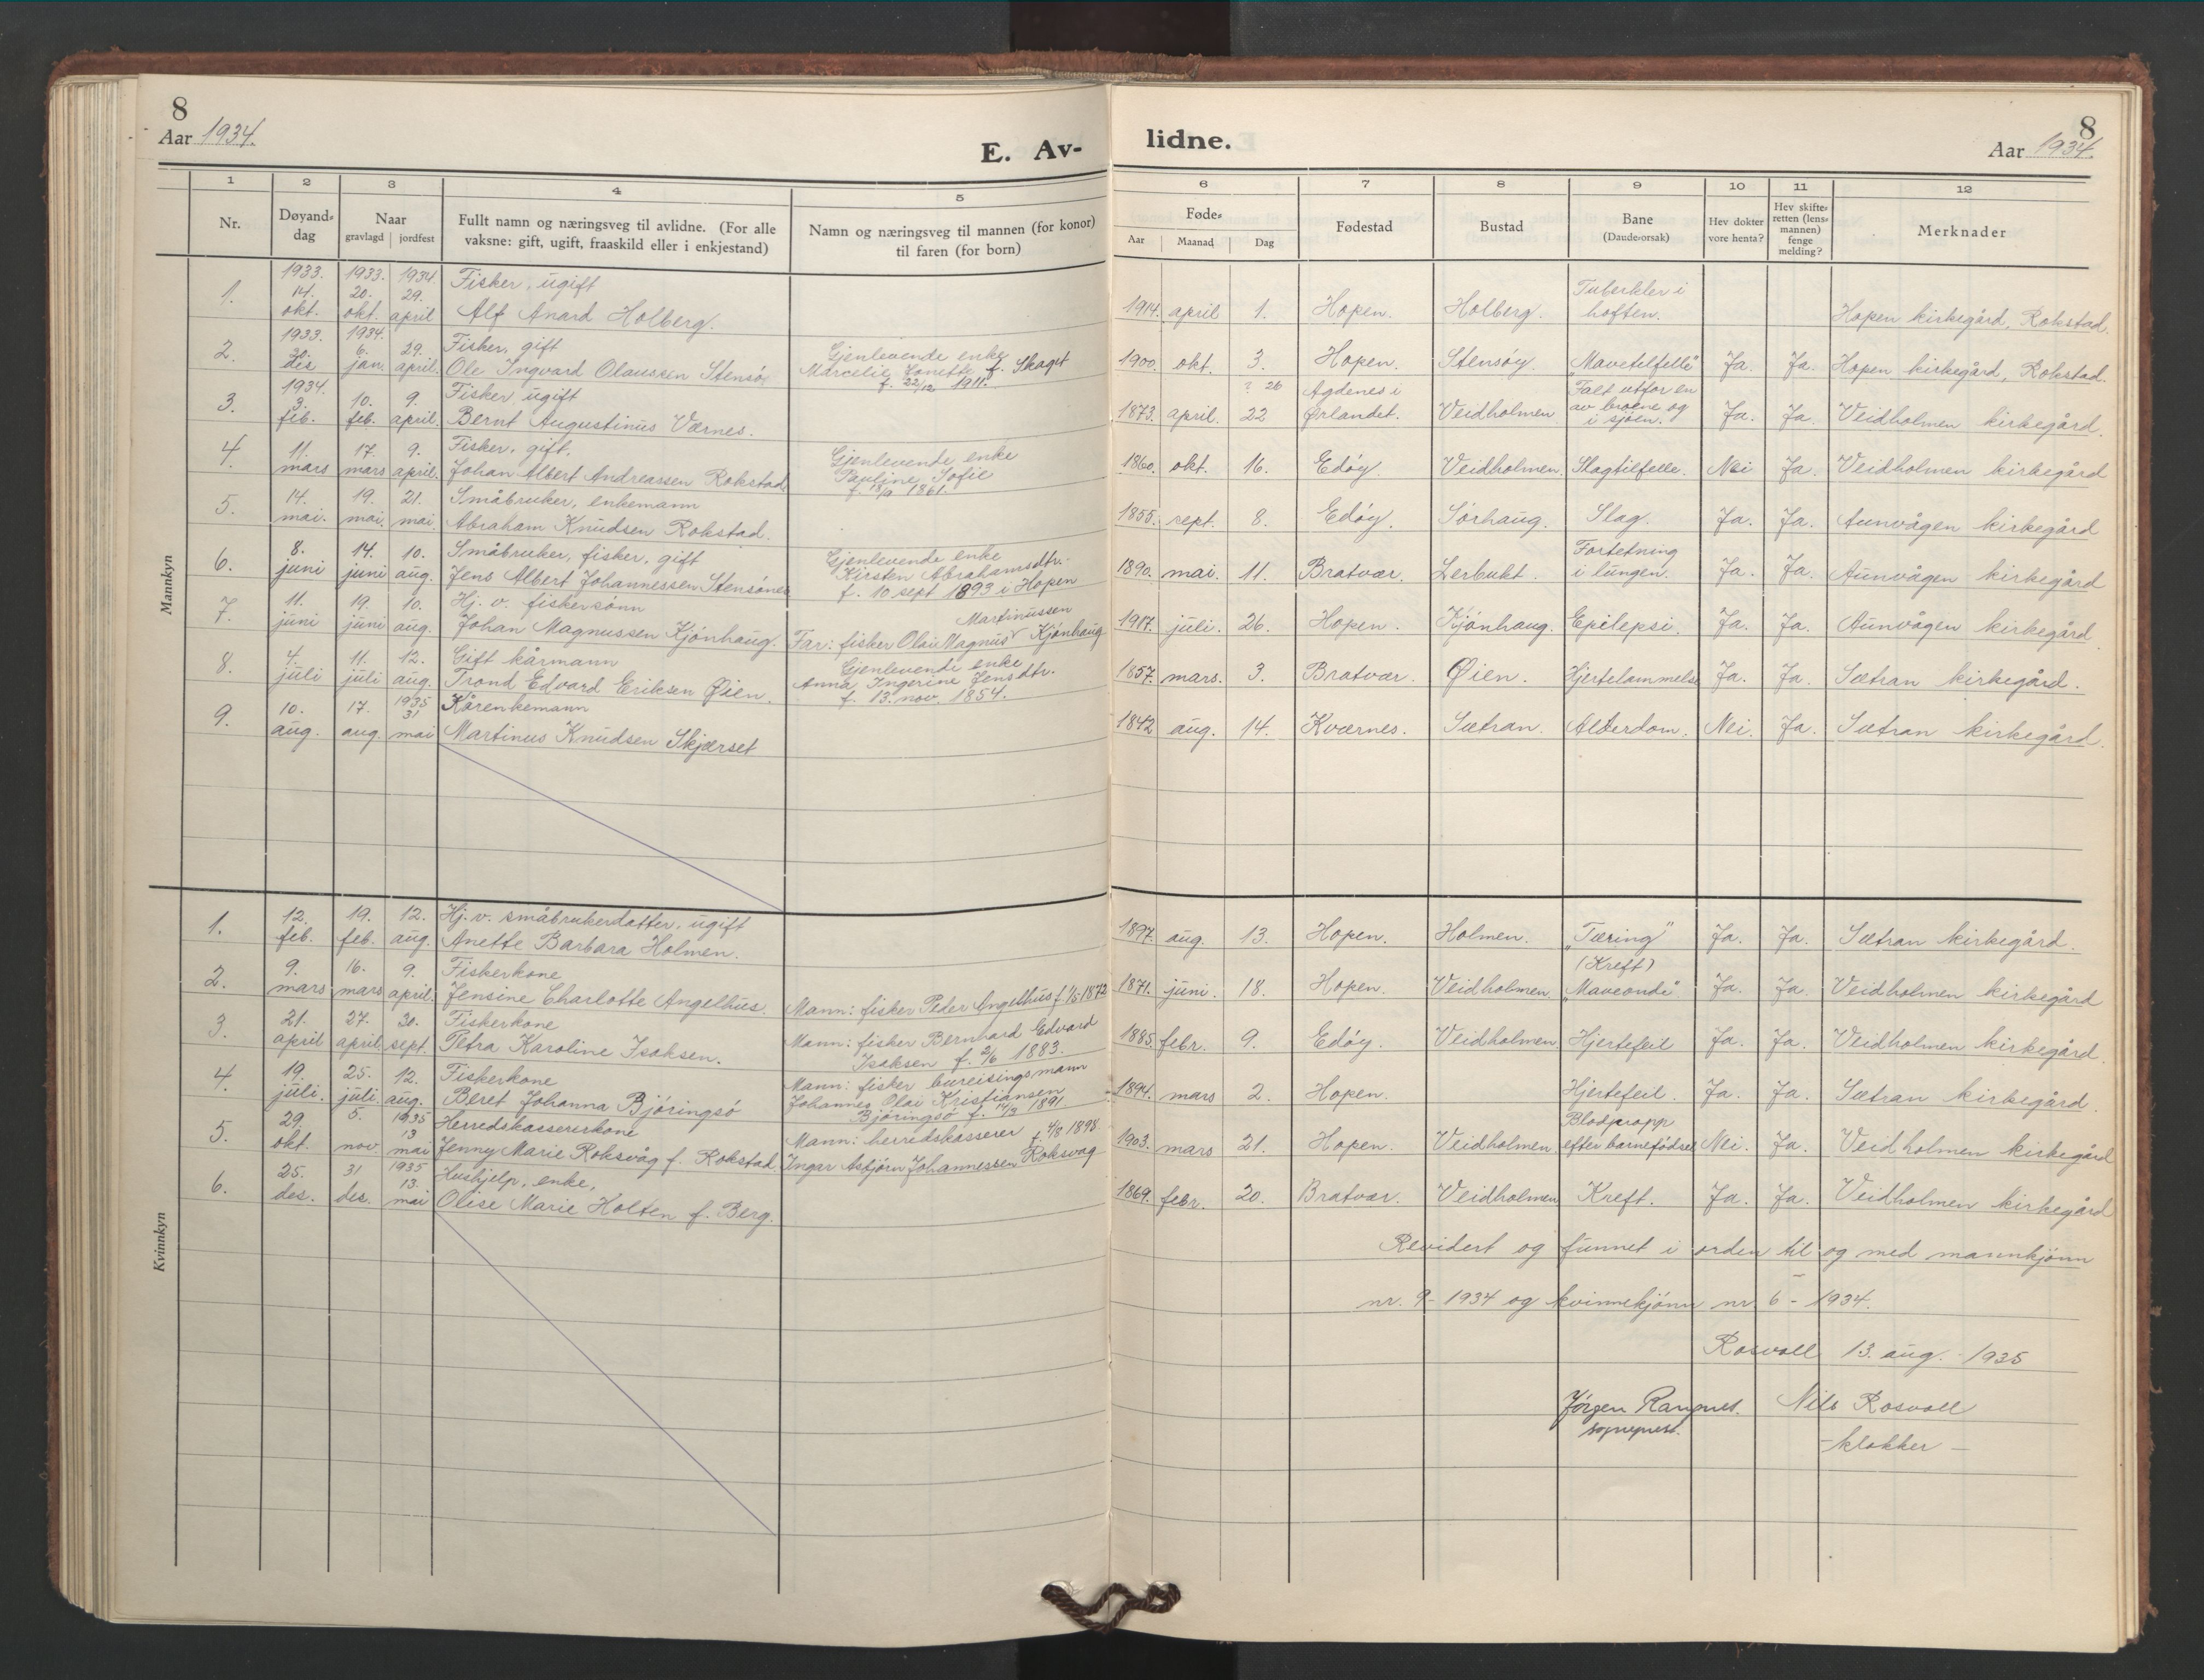 8
Aar 1934.
E. Av-
1 2 3 4 5
Nr.
Døyand-
dag
Naar
gravlagd jordfest
Fullt namn og næringsveg til avlidne. (For alle
vaksne: gift, ugift, fraaskild eller i enkjestand)
Namn og næringsveg til mannen (for konor)
til faren (for born)
lidne.
8
Aar 1934.
6 7 8 9 10 11 12
Føde-
Aar Maanad Dag
Fødestad
Bustad
Bane
(Daude-orsak)
Hev dokter
vore henta?
Hev skifte-
retten (lens-
mannen)
fenge
melding?
Merknader
Mannkyn
1. 1933. 14. okt. 1933. 20. okt. 1934. 29. april Fisker, ugift
Alf Anard Holberg. 1914. april 1. Hopen. Holberg. Tuberkler i
hoften. Hopen kirkegård, Rokstad.
2. 1933. 30. des 1934. 6. jan. 29. april. Fisker, gift
Ole Ingvard Olaussen Stensö Gjenlevende enke
Marcelie Conette f. Skaget
f. 22/12 1911. 1900. okt. 3. Hopen. Stensöy. "Mavetilfelle" Ja. Ja. Hopen kirkegård, Rokstad.
3. 1934. 3. feb. 10. feb. 9. april. Fisker, ugift
Bernt Augustinus Værnes. 1873. april. ? 26
22 Agdenes i
Ørlandet. Veidholmen Falt utfor en
av broene og
i sjöen. Ja. Ja. Veidholmen kirkegård.
4. 11. mars 17. mars 9. april. Fisker, gift.
Johan Albert Andreassen Rokstad. Gjenlevende enke
Pauline Sofie
f. 18/9 1861. 1860. okt. 16. Edöy. Veidholmen. Slagtilfelle. Nei Ja. Veidholmen kirkegård
5. 14. mai. 19. mai. 21. mai Småbruker, enkemann
Abraham Knudsen Rokstad. 1855. sept. 8. Edöy. Sörhaug. Slag. Ja. Ja. Aunvågen kirkegård
6. 8. juni 14. juni 10. aug. Småbruker, fisker, gift
Jens Albert Johannessen Stensönes Gjenlevende enke
Kirsten Abrahamsdtr.
f. 10 sept 1893 i Hopen 1890. mai. 11. Bratvær. Lerbukt. Fortetning
i lungen. Ja. Ja. Aunvågen kirkegård
7. 11. juni 19. juni 10. aug. Hj. v. fiskersönn
Johan Magnussen Kjönhaug. Martinussen
Far: fisker Olai Magnus Kjönhaug 1917. juli. 26. Hopen. Kjönhaug. Epilepsi. Ja. Ja. Aunvågen kirkegård.
8. 4. juli 11. juli 12. aug. Gift kårmann
Trond Edvard Eriksen Øien. Gjenlevende enke
Anna Ingerine Jensdtr.
f. 13. nov. 1854. 1857. mars. 3. Bratvær. Øien. Hjertelammelse Ja. Ja. Sætran kirkegård.
9. 10. aug. 17. aug. 1935 31 mai Kårenkemann
Martinus Knudsen Skjærset 1842 aug. 14. Kværnes. Sætran. Alderdom. Nei. Ja. Sætran kirkegård.
Kvinnkyn
1. 12. feb. 19. feb. 12. aug. Hj. v. småbrukerdatter, ugift
Anette Barbara Holmen. 1897. aug. 13. Hopen. Holmen. "Tæring" Ja. Ja. Sætran kirkegård.
2. 9. mars 16. mars 9. april. Fiskerkone
Jensine Charlotte Angelhus. Mann: fisker Peder Angelhus f. 1/5 1872 1871. juni. 18. Hopen. Veidholmen (Kreft)
"Maveondi" Ja. Ja. Veidholmen kirkegård
3. 21. april 27. april. 30. sept. Fiskerkone
Petra Karoline Isaksen. Mann: fisker Bernhard Edvard
Isaksen f. 2/6 1883. 1885. febr. 9. Edöy. Veidholmen Hjertefeil Ja. Ja. Veidholmen kirkegård.
4. 19. juli. 25. juli. 12. aug. Fiskerkone
Beret Johanna Björingsö Mann: fisker bureisingsmann
Johannes Olai Kristiansen
Björingsö f. 14/3 1891 1894. mars 2. Hopen. Hjertefeil. Ja. Ja. Sætran kirkegård.
5. 29. okt. 5. nov. 1935 13 mai Herredskassererkone
Jenny Marie Roksvåg f. Rokstad. Mann: herredskasserer f. 4/8 1898
Ingar Asbjörn Johannessen Roksvåg 1903. mars 21. Hopen. Veidholmen Blodpropp
efter barnefødsel Nei. Ja. Veidholmen kirkegård
6. 25. des. 31 des. 1935 13. mai Hushjelp, enke,
Olise Marie Holten f. Berg. 1869. febr. 20. Bratvær. Veidholmen Kreft. Ja. Ja. Veidholmen kirkegård
Revidert og funnet i orden til og med mannkjönn
nr. 9 - 1934 og kvinnekjönn nr. 6 - 1934.
Rosvoll 13. aug. 1935
Jörgen Rangnes. Nils Rosvoll
sogneprest. - klokker -